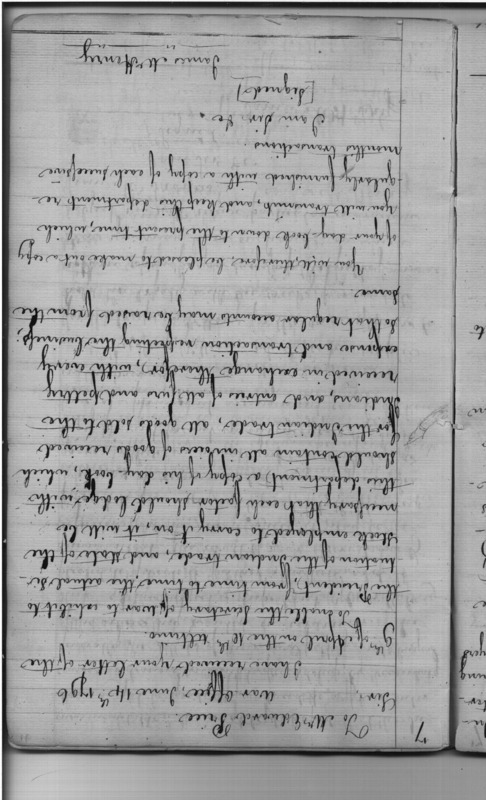 7
To Mr Edward Price
Sir, War Office June 14th 1796
I have received your letter of the
9th of April on the 10th ultimo.
To enable the Secretary of War to exhibit to
the President, from time to time, the actual si-
tuation of the Indian trade, and state of the
stock employed to carry it on, it will be
necessary that each factor should lodge with
this department, a copy of his day book, which
should contain all invoices of goods received
for the Indian trade, all goods sold to the
Indians, and entries of all furs and peltry
received in exchange therefor, with every
expense and transaction respecting the business;
so that regular accounts may be raised from the
same.
You will, therefore, be pleased to make out a copy
of your day book down to the present time, which
you will transmit, and keep this department re-
gularly furnished with a copy of each successive
month's transactions.
I am Sir &c.
[Signed]
James McHenry